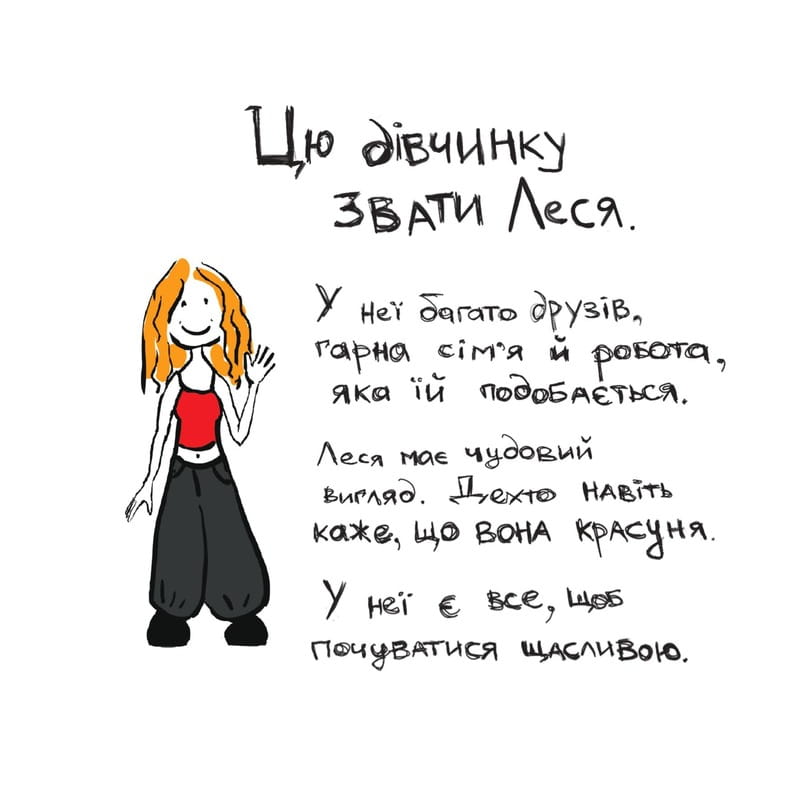 Цю дівчинку
звати Леся.
У неї багато друзів,
гарна сім'я й робота,
яка їй подобається.
Леся має чудовий
вигляд. Дехто навіть
каже, що вона красуня.
У неї є все, щоб
почуватися щасливою.